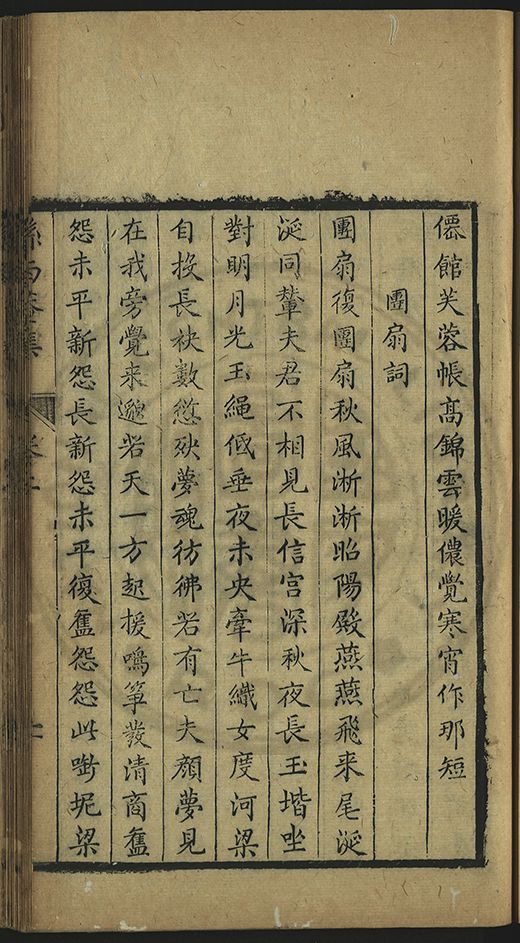 僊館芙蓉帳高錦雲暖儂覺寒宵作那短
團扇詞
團扇復團扇秋風淅淅昭陽殿燕燕飛来尾涎
涎同輦夫君不相見長信宫深秋夜長玉堦坐
對明月光玉繩低垂夜未央牽牛織女度河梁
自投長袂數愆殃夢魂彷彿若有亡夫顔夢見
在我旁覺来邈若天一方起援鳴筝發清商舊
怨未平新怨長新怨未平復舊怨怨此嘶坭梁
孫西菴集